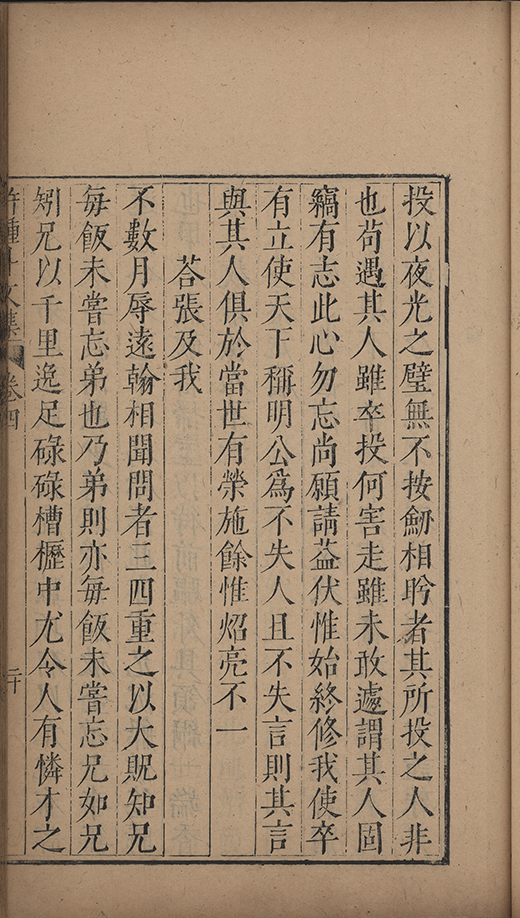 投以夜光之璧無不按劒相盻者其所投之人非
也茍遇其人雖卒投何害走雖未敢遽謂其人固
竊有志此心勿忘尚願請益伏惟始終修我使卒
有立使天下稱明公爲不失人且不失言則其言
與其人俱於當世有榮施餘惟炤亮不一
荅張及我
不數月辱遠翰相聞問者三四重之以大貺知兄
每飯未嘗忘弟也乃弟則亦每飯未嘗忘兄如兄
矧兄以千里逸足碌碌槽櫪中尤令人有憐才之
許鍾斗文集 卷四 二十